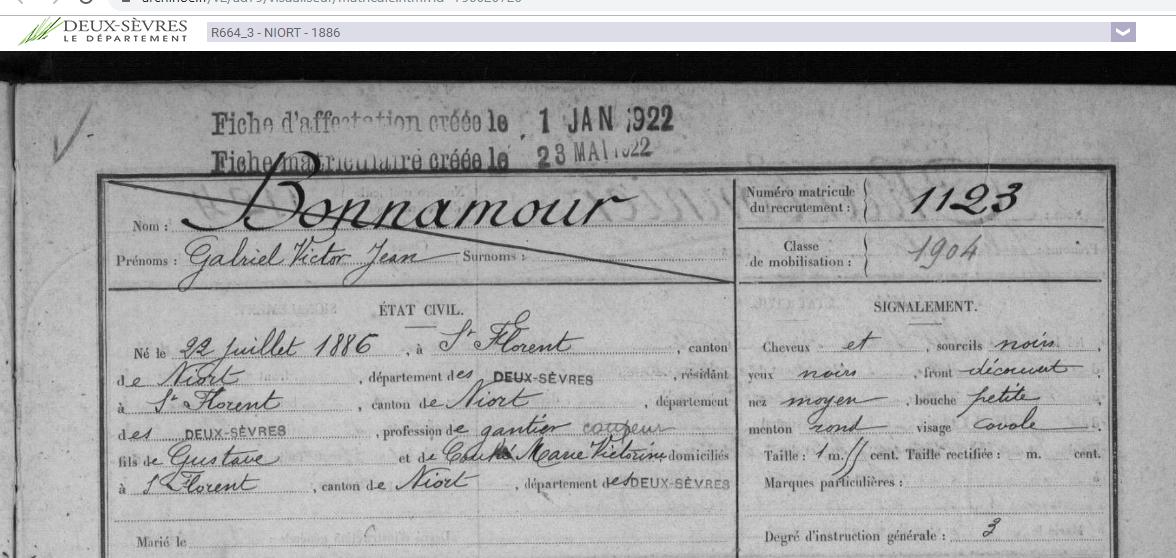 DEUX-SÈVRES
LE DÉPARTEMENT
R664_3 - NIORT - 1886
Fiche d'affectation créée le 1 JAN 1922
Fiche matriculaire créée le 23 MAI 1922
Nom : Bonnamour
Prénoms : Gabriel Victor Jean Surnoms :
Numéro matricule du recrutement : 1123
Classe de mobilisation : 1904
ÉTAT CIVIL.
Né le 22 juillet 1886, à St Florent, canton
de Niort, département des DEUX-SÈVRES, résidant
à St Florent, canton de Niort, département
des DEUX-SÈVRES, profession de gantier coupeur
fils de Gustave et de Marie Victorine domiciliés
à St Florent, canton de Niort, département des DEUX-SÈVRES
Marié le
SIGNALEMENT.
Cheveux et, sourcils noirs,
yeux noirs, front découvert,
nez moyen, bouche petite
menton rond visage ovale.
Taille : 1 m. // cent. Taille rectifiée : m. cent.
Marques particulières :
Degré d'instruction générale : 3